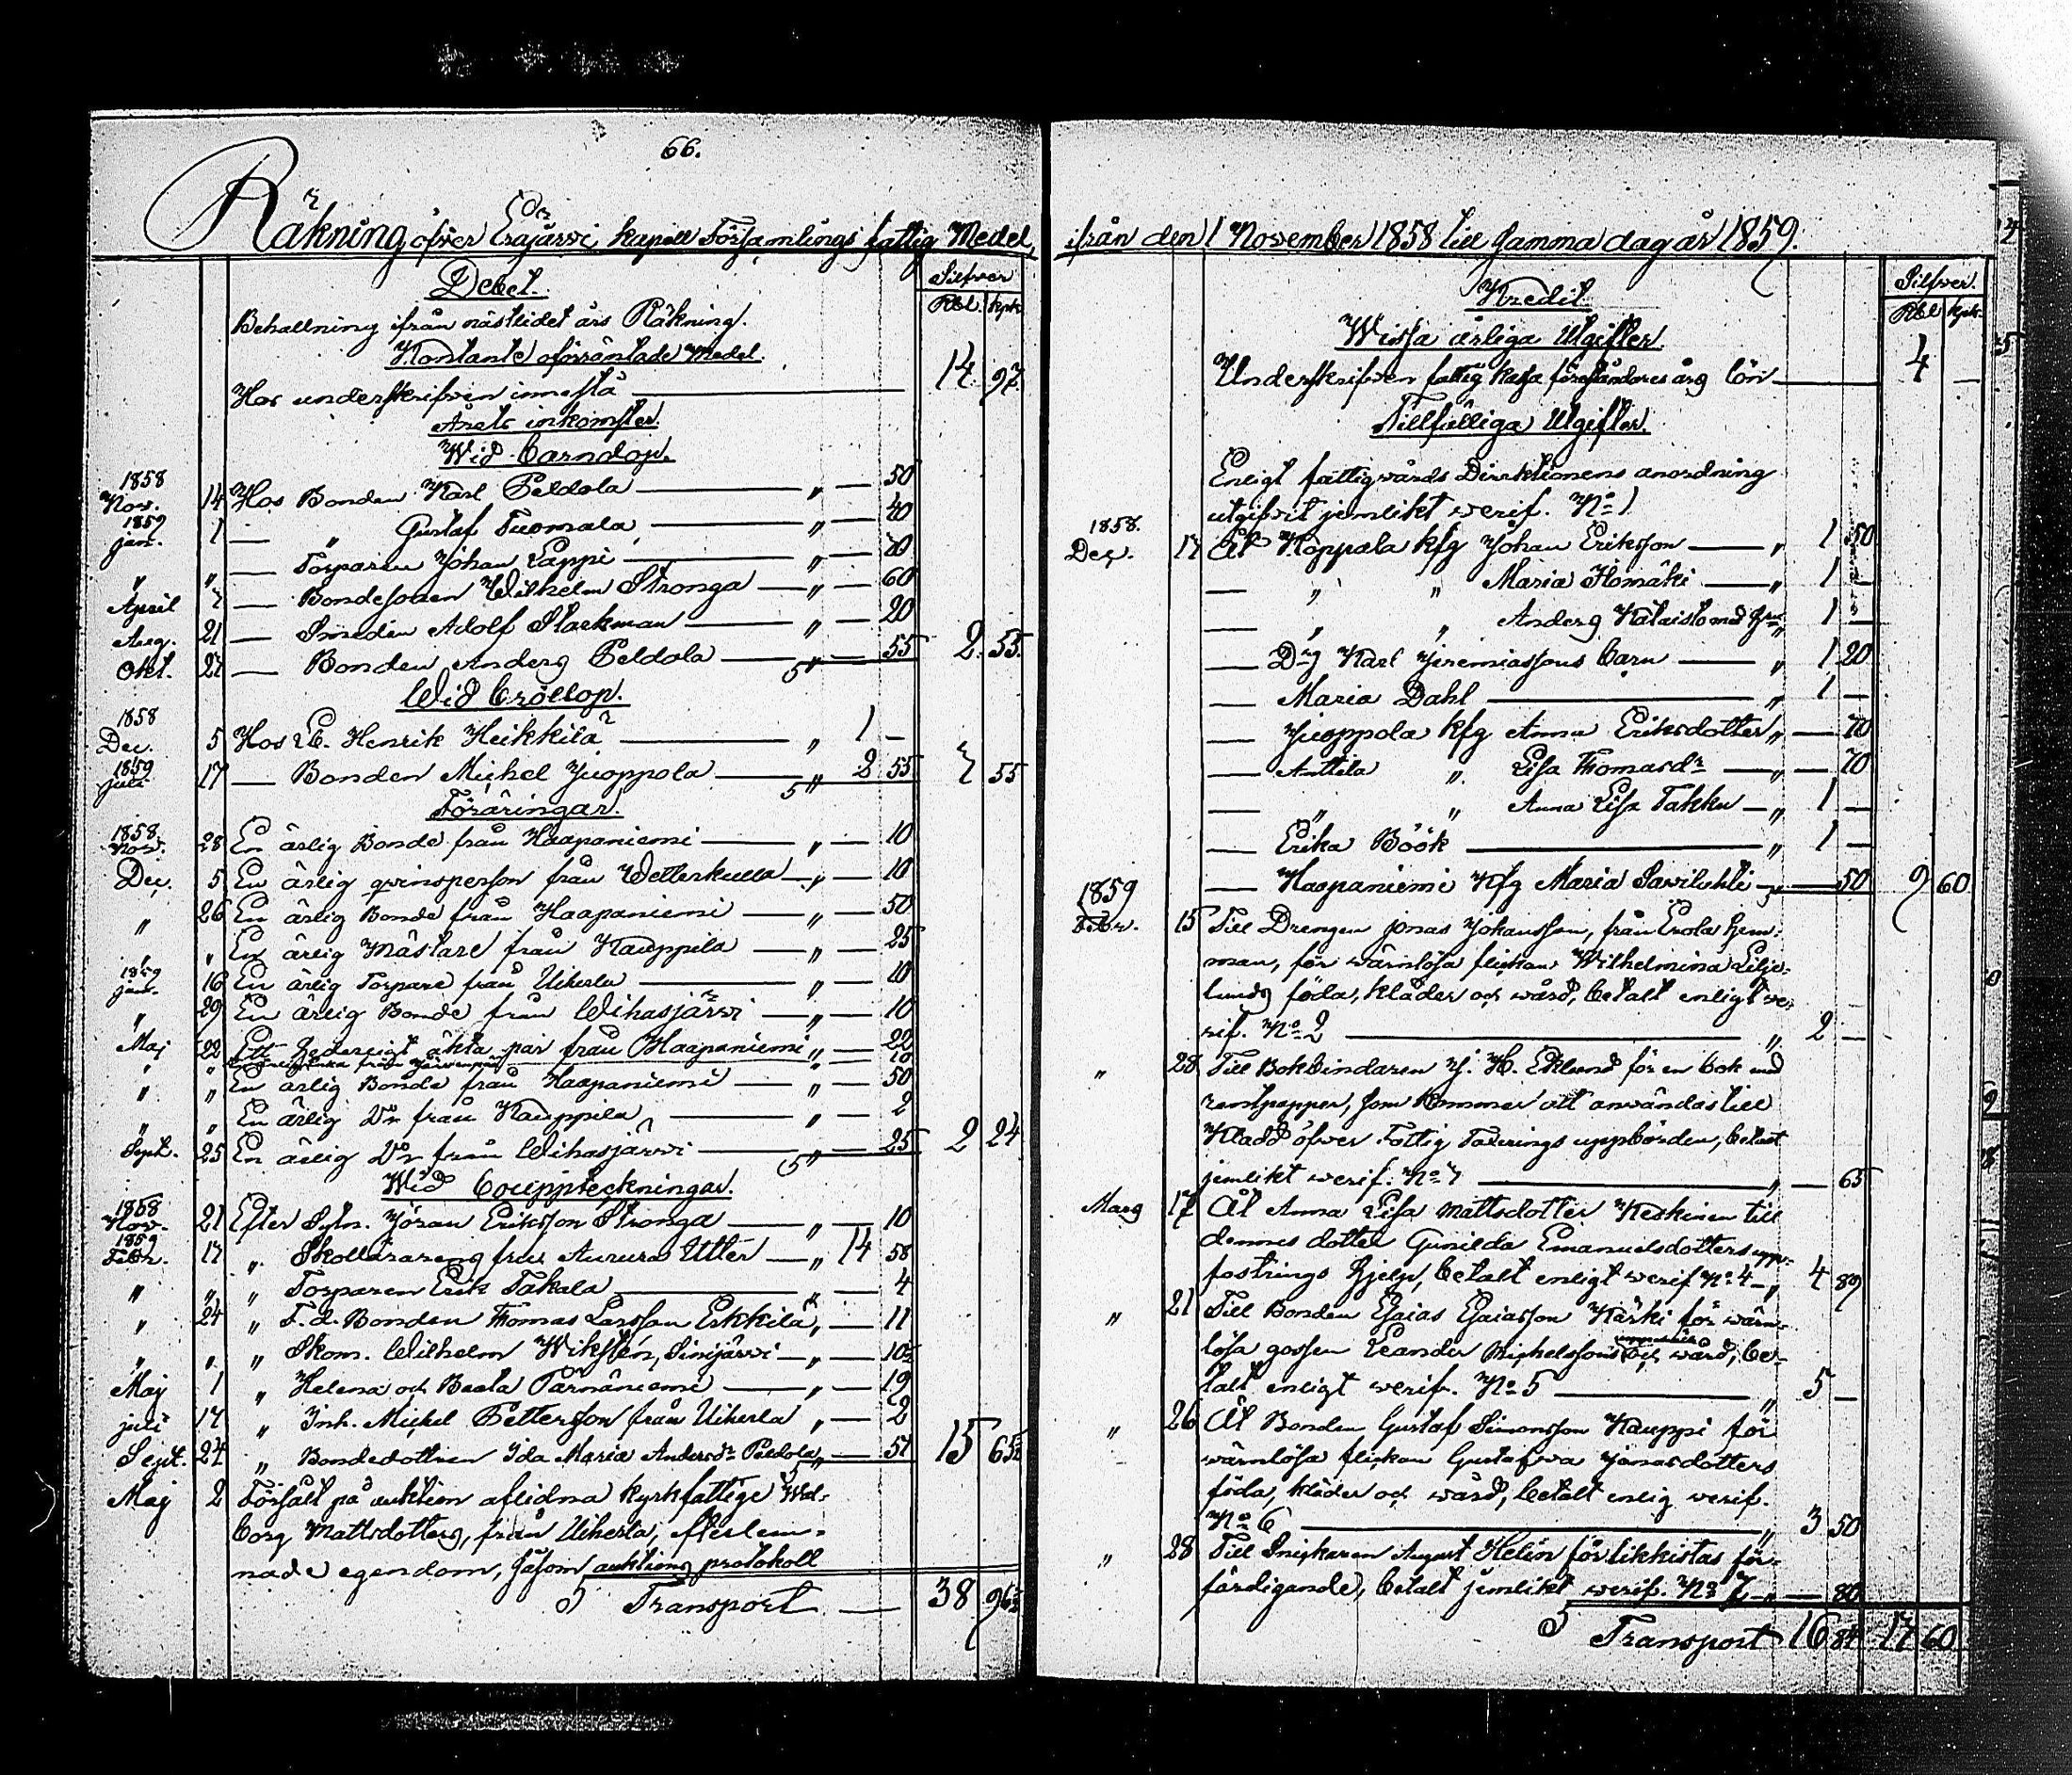 66.
Räkning öfver Eräjärvi kapell Församlings fattig Medel,
Debet.
Silfver
Rbl. kpk
Behållning ifrån nästlidet års Räkning.
Kontante oförräntade Medel.
Hos underskrifven innestå — 14 97
Årets inkomster.
Wid Barndop.
1858 Nov. 14 Hos Bonden Karl Peldola — " — 50
1859 jan. 1 — " Gustaf Tuomala — " — 40
" " — Torparen Johan Lappi — " — 20
April 7 — Bondesonen Wilhelm Stronga — " — 60
Aug. 21 — Smeden Adolf Starkman — " — 20
Okt. 27 — Bonden Anders Peldola — " — 55 2 55
Wid Bröllop.
1858 Dec. 5 Hos Henrik Heikkilä — " 1 —
1859 Juli 17 — Bonden Michel Juoppola — " 2 55 55
Föräringar.
1858 Nov. 28 En ärlig Bonde från Haapaniemi — " — 10
Dec. 5 En ärlig qvinsperson från Wetterkulla — " — 10
" 26 En ärlig Bonde från Haapaniemi — " — 50
" " En ärlig Mästare från Kauppila — " — 25
1859 jan. 16 En ärlig Torpare från Uiherla — " — 10
" 29 En ärlig Bonde från Wihasjärvi — " — 10
Maj 22 Ett hedersigt äkta par från Haapaniemi " — 22
" " från — 10
" " En ärlig Bonde från Haapaniemi — " — 50
" " En ärlig Dr från Kauppila — " — 2
Sept. 25 En ärlig Dr från Wihasjärvi — " — 25 2 24
Wid Bouppteckningar.
1858 Nov. 21 Efter Sytn. Jöran Eriksson Stronga — " — 10
1859 Febr. 17 " Skollärarens fru Aurura Utter — " 14 58
" " " Torparen Erik Takala — " — 4
" 24 " F. d. Bonden Thomas Larsson Erkkilä " — 11
" " " Skom. Wilhelm Wiksten, Sinijärvi — " — 10½
Maj 1 " Helena och Beata Pärnäniemi — " — 19
juli 17 " Inh. Michel Pettersson från Uiherla " — 2
Sept. 24 " Bondedottren Ida Maria Andersdr Peldola " — 51 15 65½
Maj 2 Försålt på auktion aflidna kyrkfattige Wal-
borg Mattsdotters, från Uiherla, efterlem-
nade egendom, såsom auktions protokoll
Transport — 38 96½
ifrån den 1 November 1858 till samma dag år 1859.
Kredit.
Silfver.
Rbl kpk.
Wissa årliga Utgifter.
Underskrifven fattig kassa föreståndares års lön — 4 —
Tillfälliga Utgifter.
Enligt fattigvårds Direktionens anordning
utgifvit jemlikt verif. No 1
1858. Dec. 17 Åt Koppala kfg Johan Eriksson — " 1 50
— " " Maria Homäki — " 1 —
— " " Anders Kataisto med " 1 —
— Dng Karl Jeremiassons barn — " 1 20
— Maria Dahl — " 1 —
— Juoppola kfg Anna Eriksdotter " — 70
— Anttila " Lisa Thomasdr — " — 70
— " " Anna Lisa Takku — " 1 —
— Erika Böök — " 1 —
— Haapaniemi kfg Maria Saviluhti — " — 50 9 60
1859 Febr. 15 Till Drengen jonas Johansson, från Erola hem-
man, för wärnlösa flickan Wilhelmina Lilje-
lunds föda, kläder och wård, betalt enligt ve-
rif. No 2 — " 2 —
" 28 Till Bokbindaren J. H. Eklund för en bok med
rentpapper, som kommer att användas till
Kladd öfver Fattig Taxerings uppbörden, betalt
jemlikt verif. No 3 — " — 65
Mars 17 Åt Anna Lisa Mattsdotter Keskinen till
dennes dotter Gunilda Emanuelsdotters upp-
fostrings hjelp, betalt enligt verif. No 4 — " 4 89
" 21 Till Bonden Esaias Esaiasson Kärki för wärn-
lösa gossen Leander Michelssons och wård, be-
talt enligt verif. No 5 — " 5 —
" 26 Åt Bonden Gustaf Simonsson Kauppi för
wärnlösa flickan Gustafva Jonasdotters
föda, kläder och wård, betalt enlig verif.
No 6 — " 3 50
" 28 Till Snickaren August Helin för likkistas för-
färdigande, betalt jemlikt verif. No 7 — " — 80
Transport 16 84 17 60